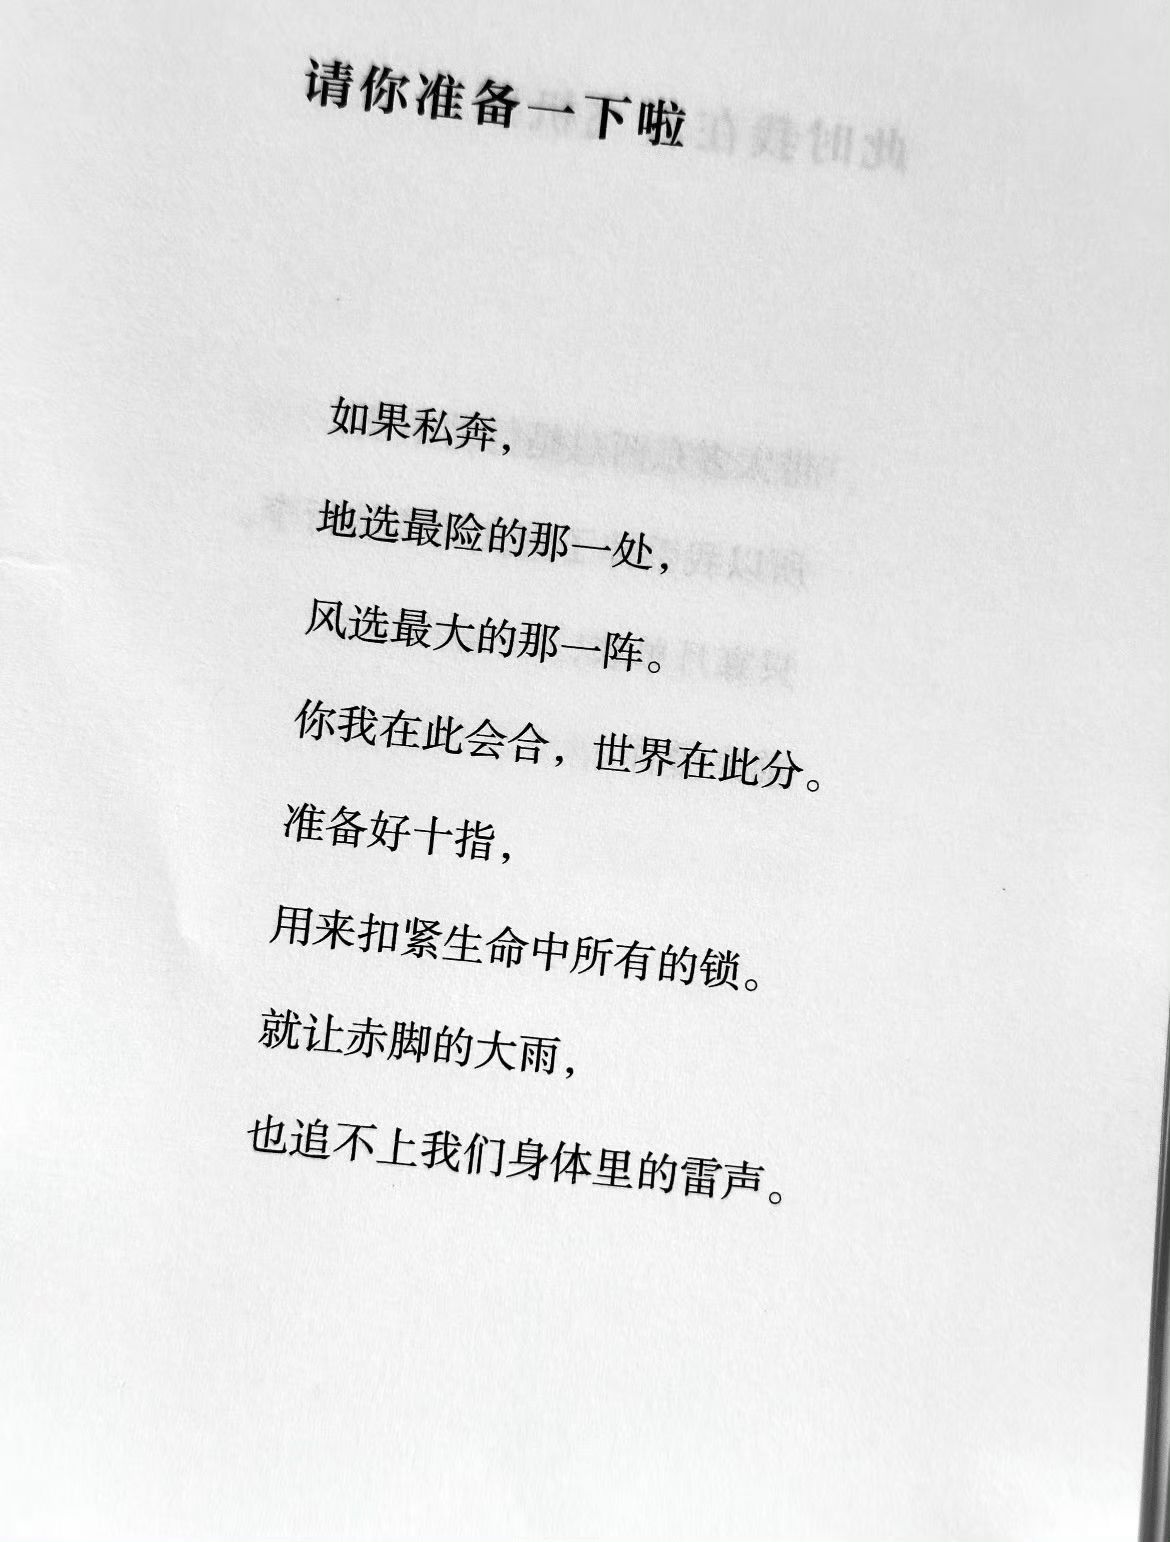 请你准备一下啦
如果私奔，
地选最险的那一处，
风选最大的那一阵。
你我在此会合，世界在此分。
准备好十指，
用来扣紧生命中所有的锁。
就让赤脚的大雨，
也追不上我们身体里的雷声。